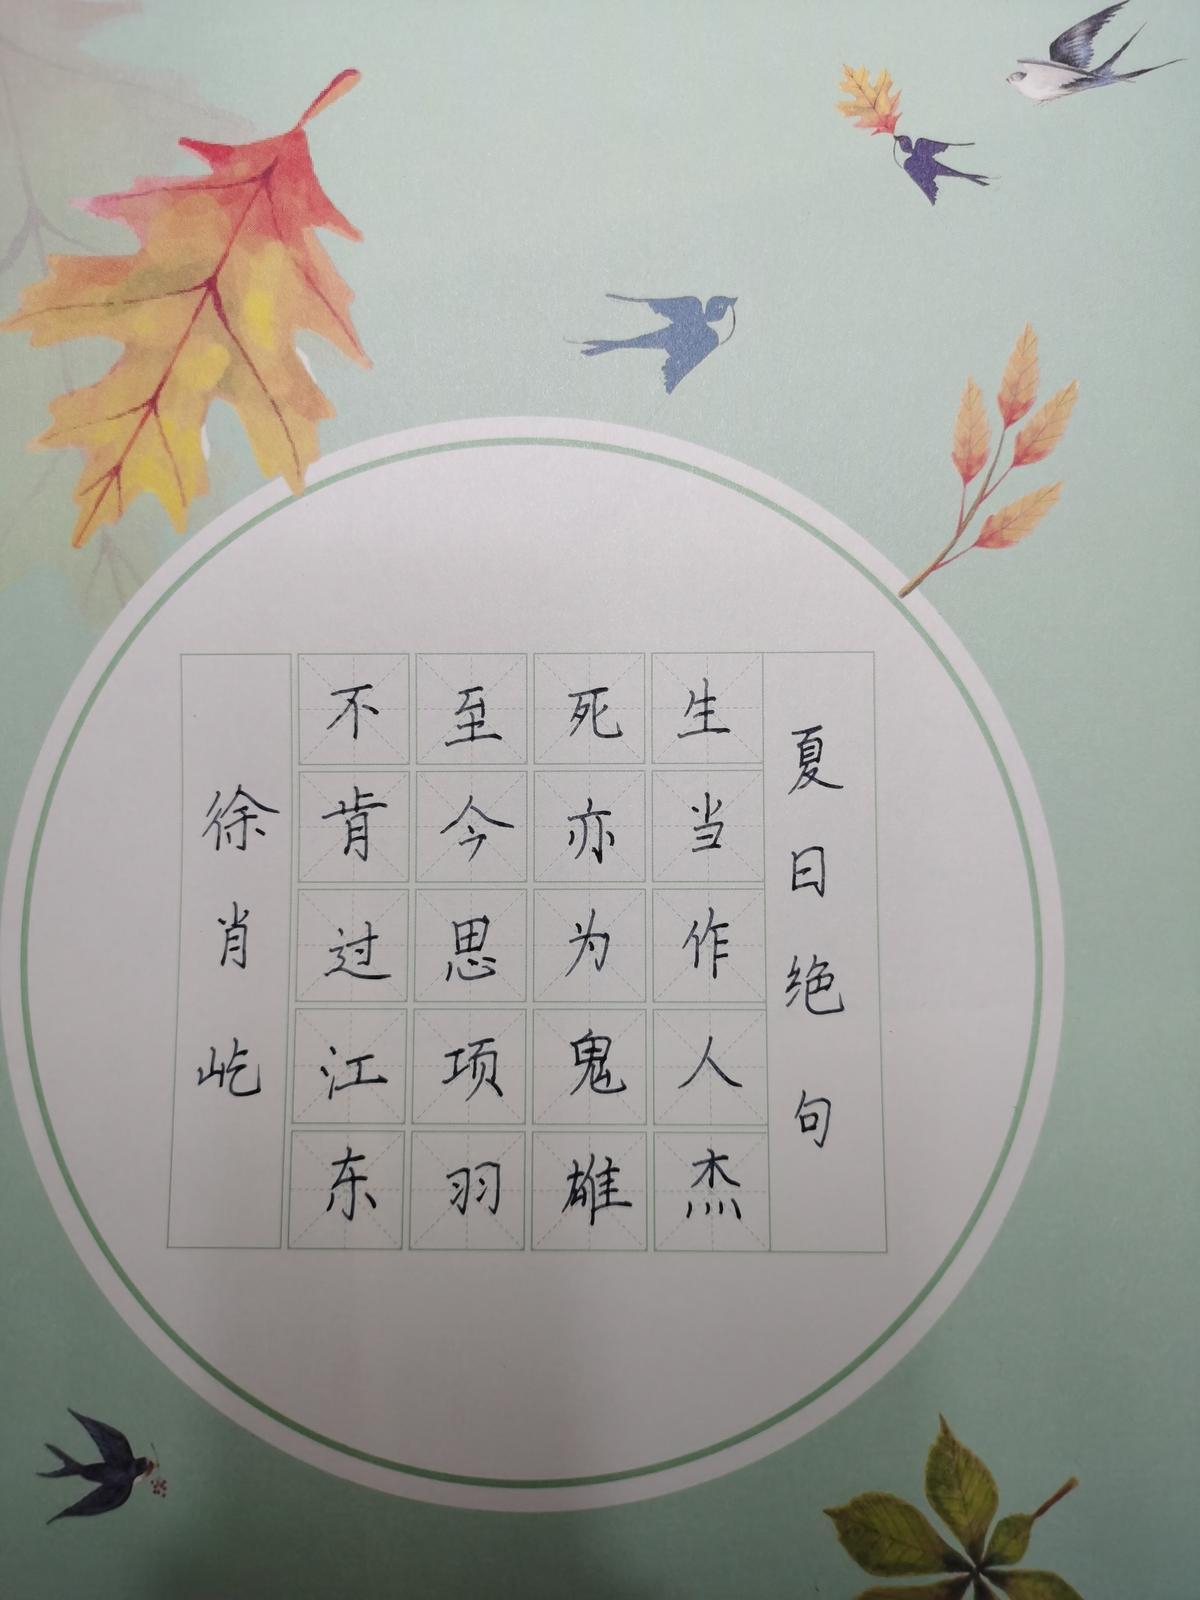 夏日绝句
生当作人杰
死亦为鬼雄
至今思项羽
不肯过江东
徐肖屹